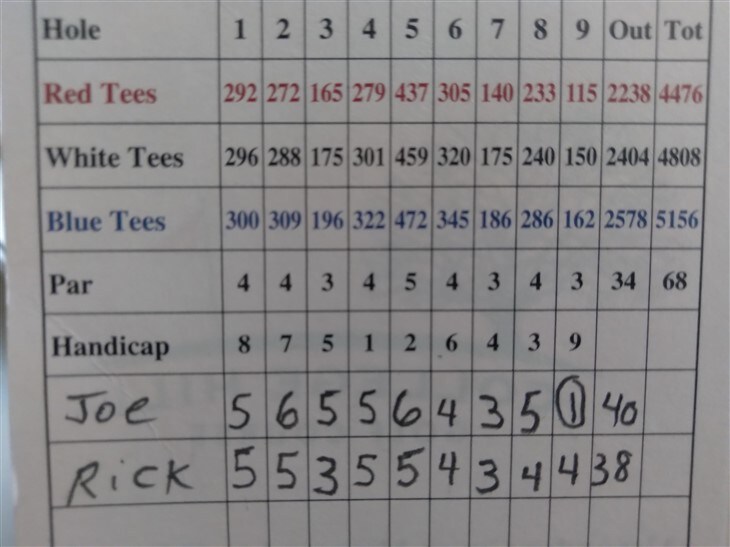 Hole 1 2 3 4 5 6 7 8 9 Out Tot
Red Tees 292 272 165 279 437 305 140 233 115 2238 4476
White Tees 296 288 175 301 459 320 175 240 150 2404 4808
Blue Tees 300 309 196 322 472 345 186 286 162 2578 5156
Par 4 4 3 4 5 4 3 4 3 34 68
Handicap 8 7 5 1 2 6 4 3 9
Joe 5 6 5 5 6 4 3 5 1 40
Rick 5 5 3 5 5 4 3 4 4 38